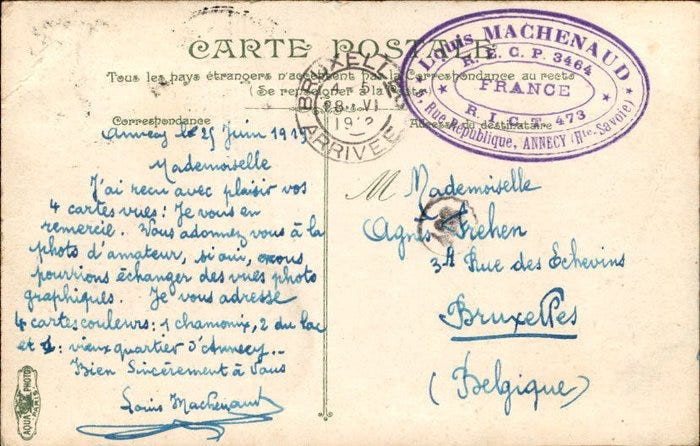 CARTE POSTALE
Tous les pays étrangers n'acceptent pas la Correspondance au recto
(Se renseigner à la Poste)
Correspondance
Adresse du destinataire
BRUXELLES
28 VI
ARRIVEE
Louis MACHENAUD
H.E.C.P. 3464
FRANCE
R.I.C.T. 473
Rue République, ANNECY (Hte-Savoie)
Annecy le 25 Juin 1912
Mademoiselle
J'ai reçu avec plaisir vos
4 cartes vues: Je vous en
remercie. Vous adonnez vous à la
photo d'amateur, si oui, nous
pourrions échanger des vues photo
graphiques. Je vous adresse
4 cartes couleurs: 1 chamonix, 2 du lac
et 1: vieux quartier d'Annecy..
Bien Sincèrement à Vous
Louis Machenaud
M Mademoiselle
Agnès Frehen
Rue des Echevins
Bruxelles
(Belgique)
AQUA PHOTO
PARIS